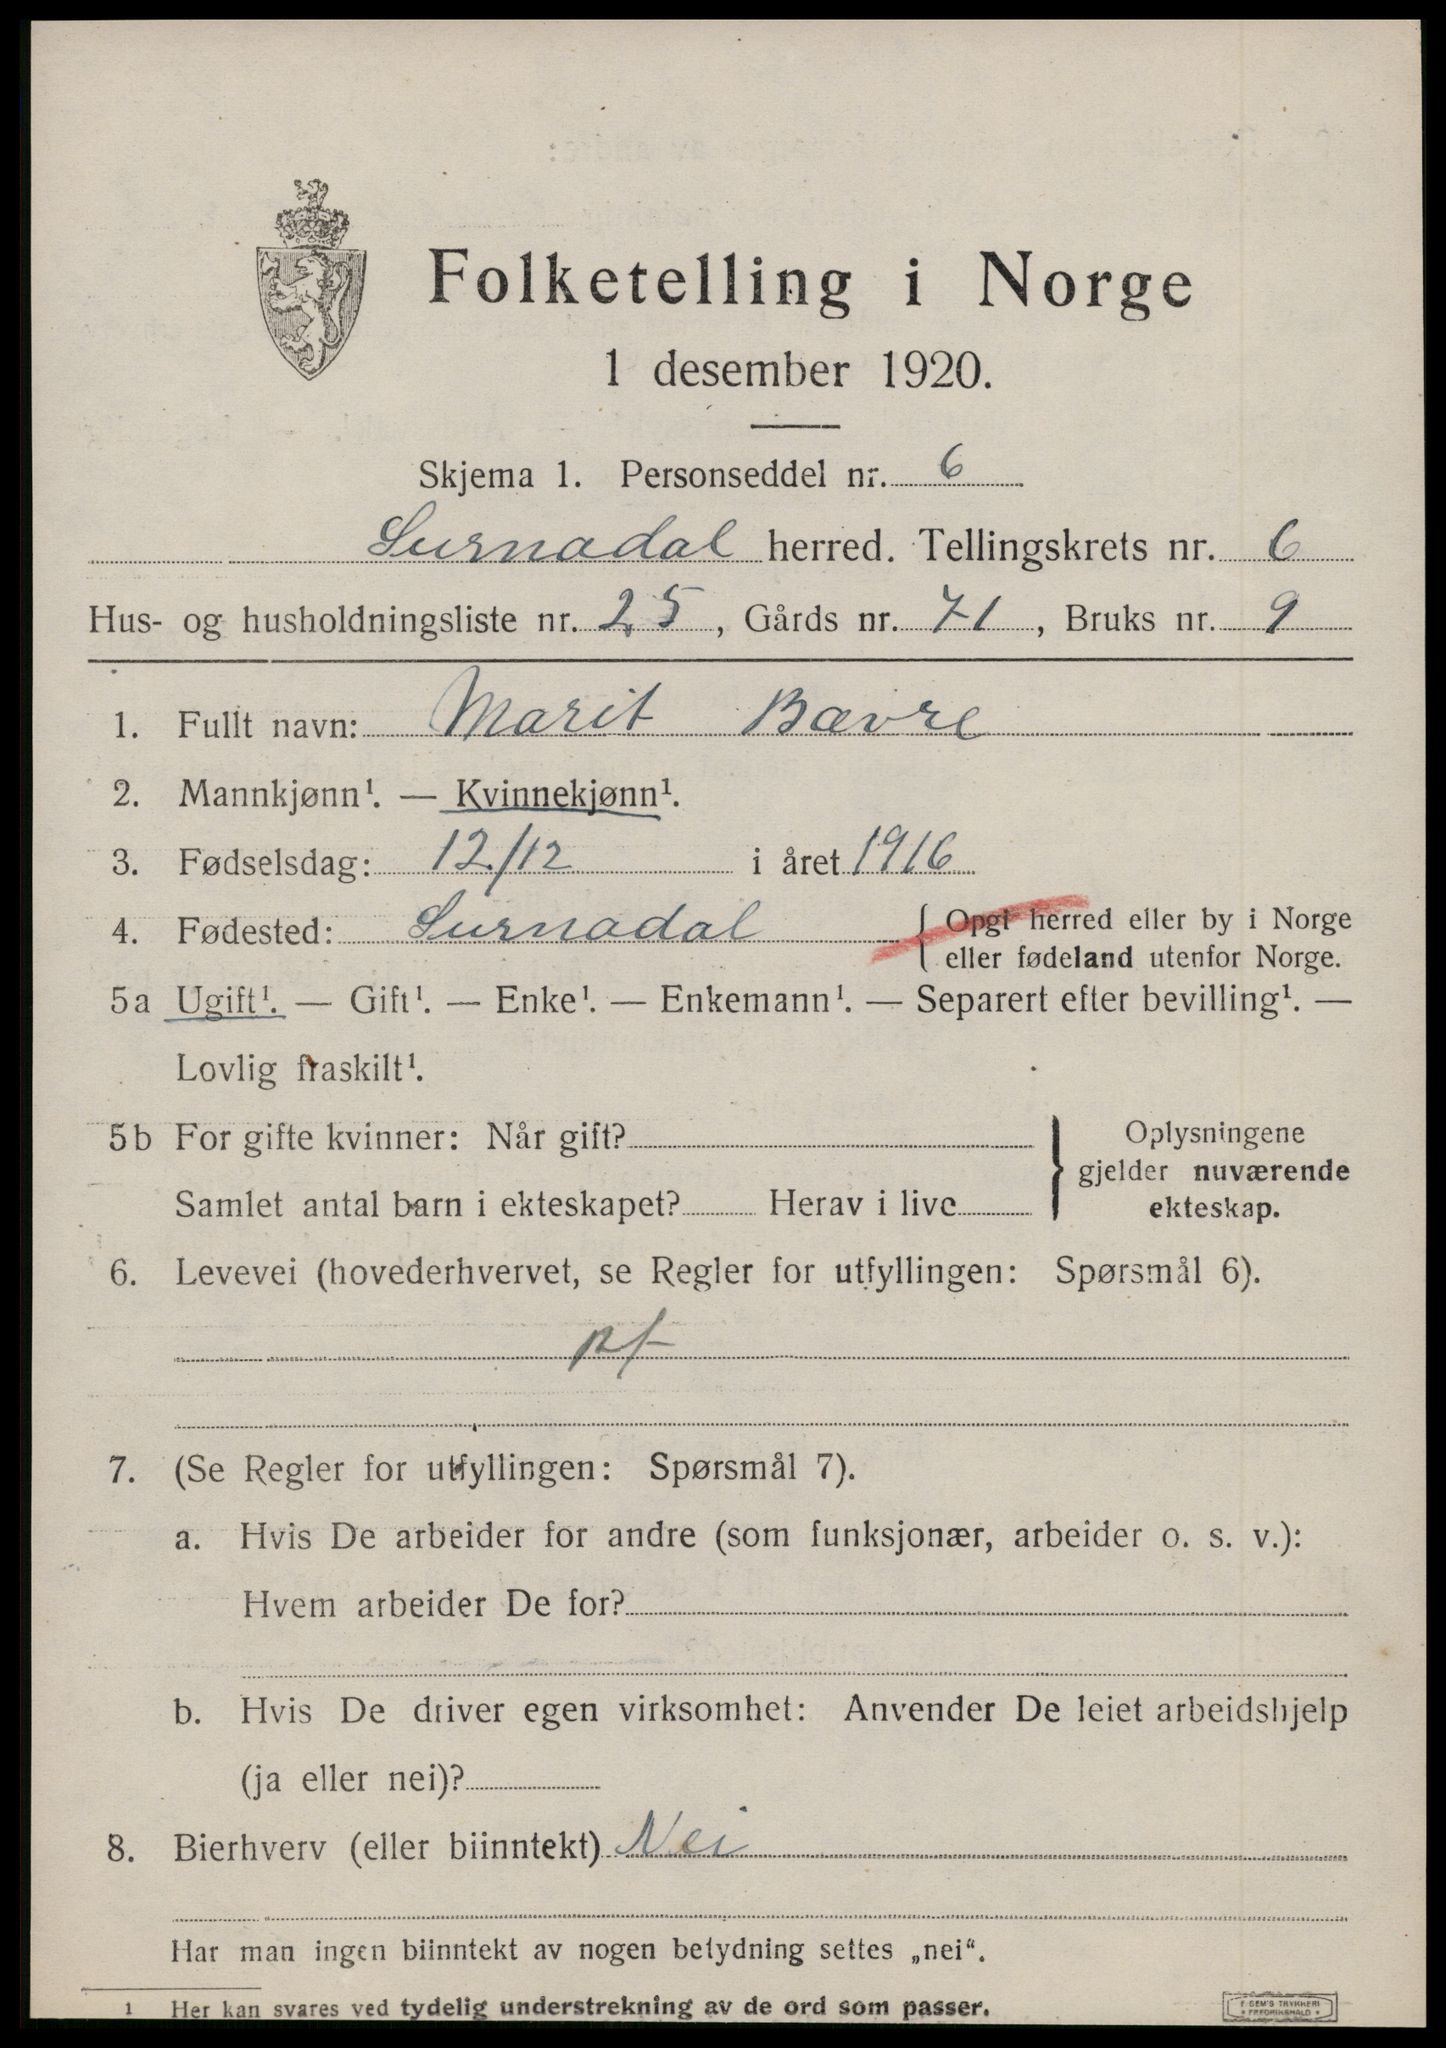 Folketelling i Norge
1 desember 1920.
Skjema 1. Personseddel nr. 6
Surnadal herred. Tellingskrets nr. 6
Hus- og husholdningsliste nr. 25, Gårds nr. 71, Bruks nr. 9
1. Fullt navn: Marit Bævre
2. Mannkjønn¹. — Kvinnekjønn¹.
3. Fødselsdag: 12/12 i året 1916
4. Fødested: Surnadal { Opgi herred eller by i Norge
eller fødeland utenfor Norge.
5a Ugift¹. — Gift¹. — Enke¹. — Enkemann¹. — Separert efter bevilling¹. —
Lovlig fraskilt¹.
5b For gifte kvinner: Når gift?
Samlet antal barn i ekteskapet? Herav i live
} Oplysningene
gjelder nuværende
ekteskap.
6. Levevei (hovederhvervet, se Regler for utfyllingen: Spørsmål 6).
pf
7. (Se Regler for utfyllingen: Spørsmål 7).
a. Hvis De arbeider for andre (som funksjonær, arbeider o. s. v.):
Hvem arbeider De for?
b. Hvis De driver egen virksomhet: Anvender De leiet arbeidshjelp
(ja eller nei)?
8. Bierhverv (eller biinntekt) Nei
Har man ingen biinntekt av nogen betydning settes „nei“.
1 Her kan svares ved tydelig understrekning av de ord som passer.
E SEM'S TRYKKERI
* FREDRIKSHALD *